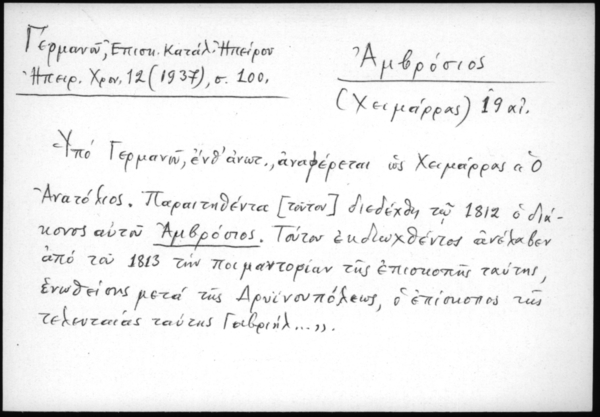 Γερμανοῦ, Ἐπισκ. Κατάλ. Ἠπείρου
Ἠπειρ. Χρον. 12 (1937), σ. 100.
Ἀμβρόσιος
(Χειμάρρας) 19 αἰ.
Ὑπό Γερμανοῦ, ἐνθ' ἀνωτ., ἀναφέρεται ὡς Χειμάρρας « Ὁ
Ἀνατόλιος. Παραιτηθέντα [τοῦτον] διεδέχθη τῷ 1812 ὁ διά-
κονος αὐτοῦ Ἀμβρόσιος. Τοῦτον ἐκδιωχθέντος ἀνέλαβεν
ἀπό τοῦ 1813 τήν ποιμαντορίαν τῆς ἐπισκοπῆς ταύτης,
ἑνωθείσης μετά τῆς Δρυϊνουπόλεως, ὁ ἐπίσκοπος τῆς
τελευταίας ταύτης Γαβριήλ...».